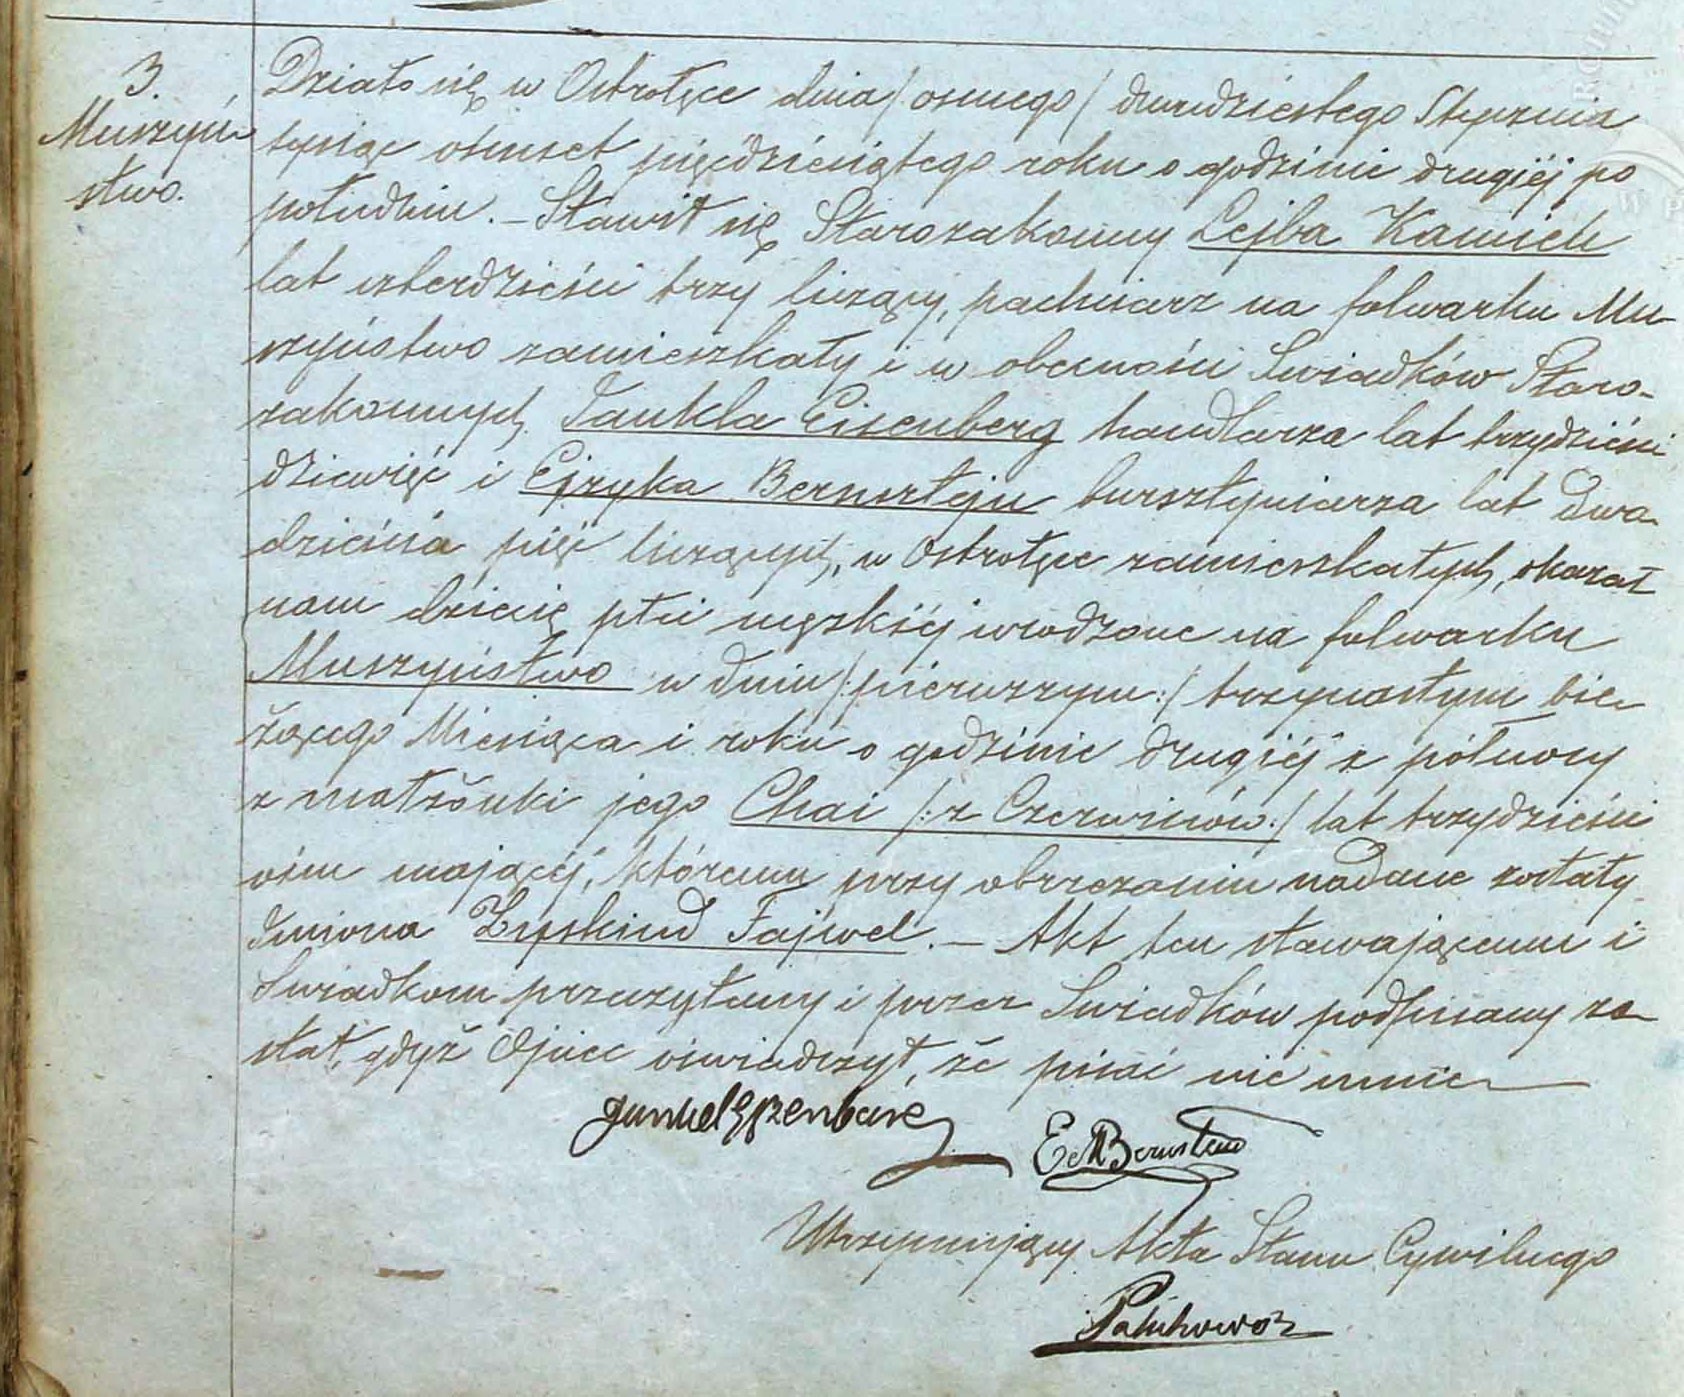 3.
Muszyń-
stwo.
Działo się w Ostrołęce dnia /osmego/ dwudziestego Stycznia
tysiąc osmset pięćdziesiątego roku o godzinie drugiéj po
południu. – Stawił się Starozakonny Lejba Kamich
lat czterdzieści trzy liczący, pachciarz na folwarku Mu-
szyństwo zamieszkały i w obecności Swiadków Staro-
zakonnych Jankla Eisenberg handlarza lat trzydzieści
dziewięć i Ejzyka Bernsztejn bursztyniarza lat dwa-
dzieścia pięć liczących, w Ostrołęce zamieszkałych, okazał
nam dziecię płci męzkiéj urodzone na folwarku
Muszyństwo w dniu /:pierwszym:/ trzynastym bie-
żącego Miesiąca i roku o godzinie drugiéj z północy
z małżonki jego Chai /:z Czerwinów:/ lat trzydzieści
ośm mającéj, któremu przy obrzezaniu nadane zostały
Imiona Zyskind Fajwel. – Akt ten stawającemu i
Swiadkom przeczytany i przez Swiadków podpisany zo-
stał, gdyż Ojciec oświadczył, że pisać nie umie
E M Bernstein
Utrzymujący Akta Stanu Cywilnego